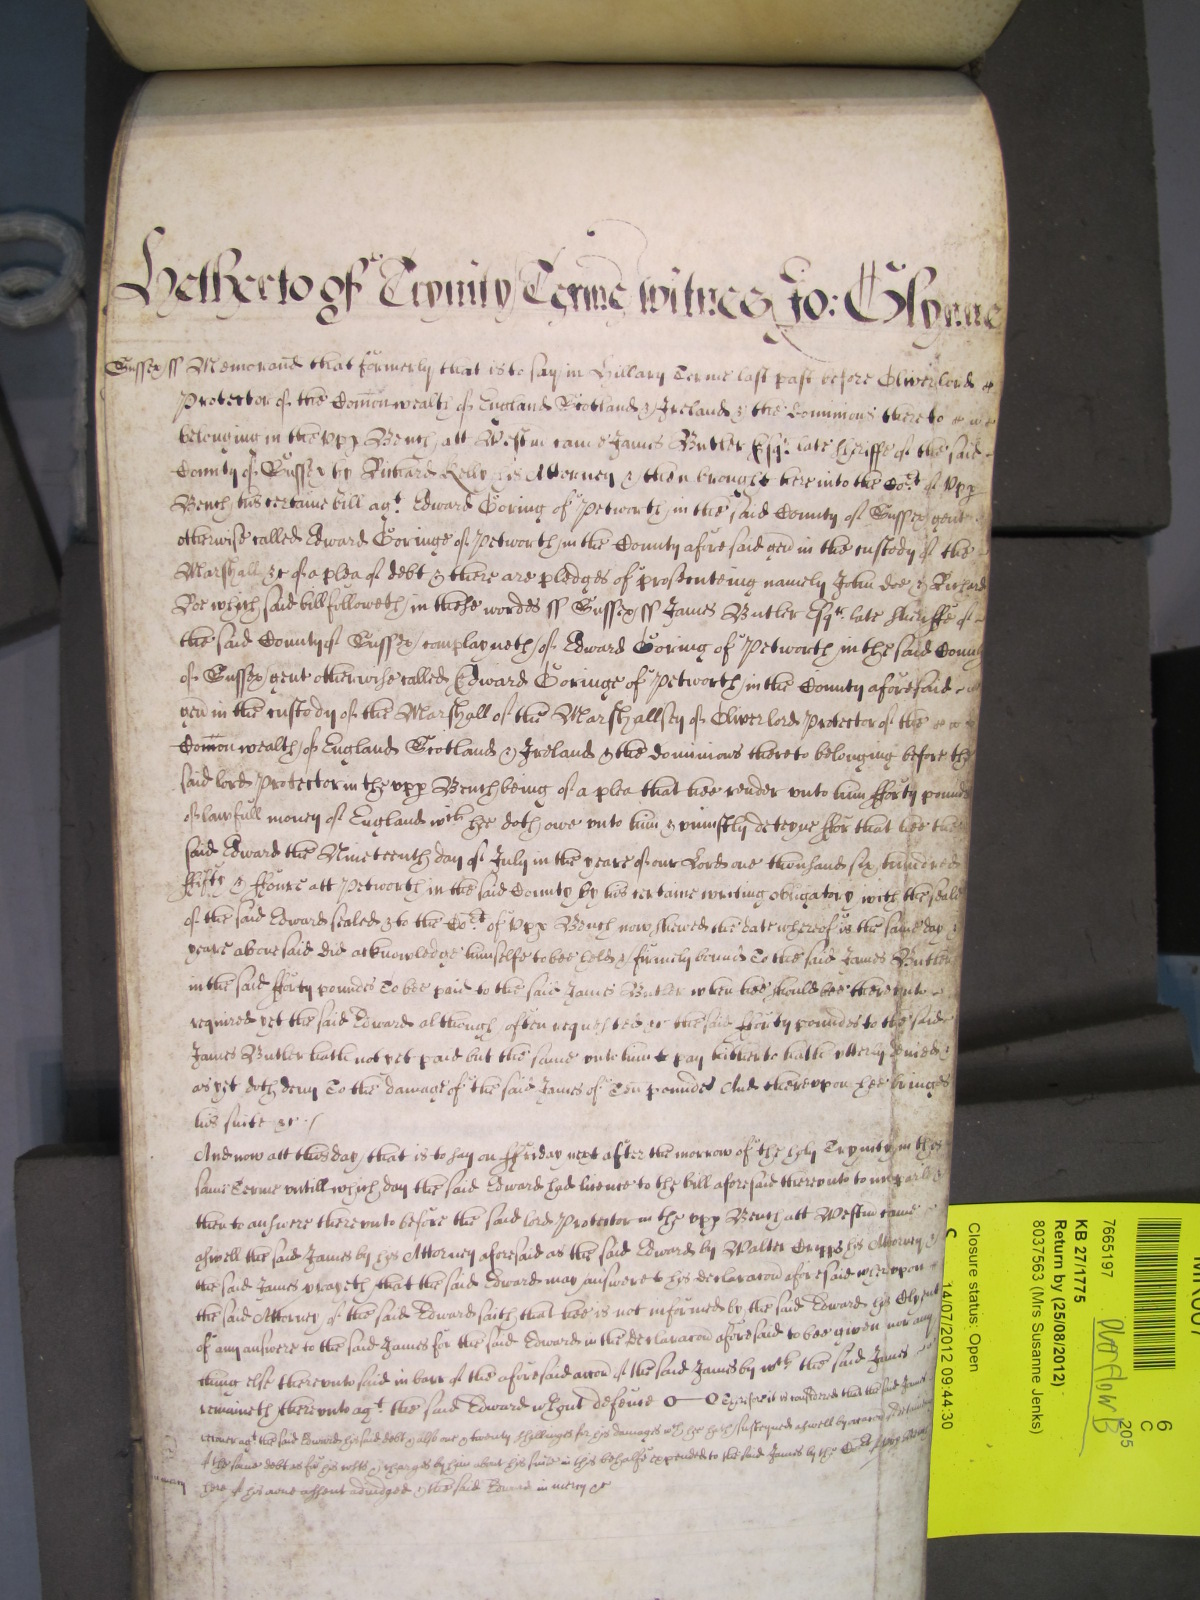 Hetherto of Trynity Terme witnes Jo: Glynne
Sussex ss Memorand that formerly that is to say in Hillary Terme last past before Oliver lord
Protector of the Comon wealth of England Scotland & Ireland & the dominions thereto
belonging in the Upp Bench att Westm came James Butler Esqr late sheriffe of the said
County of Sussex by Richard Kelly his Attorney & then brought here into the Cort of Upp
Bench his certaine bill agt Edward Goring of Petworth in the said County of Sussex gent
otherwise called Edward Goringe of Petworth in the County aforesaid gen in the custody of the
Marshall &c of a plea of debt & there are pledges of prosecuteing namely John doe & Richard
Roe which said bill followeth in these wordes ss Sussex ss James Butler Esqr late sheriffe of
the said County of Sussex complayneth of Edward Goring of Petworth in the said County
of Sussex gent otherwise called Edward Goringe of Petworth in the County aforesaid
gen in the custody of the Marshall of the Marshallsey of Oliver lord Protector of the
Comon wealth of England Scotland & Ireland & the dominions thereto belonging before the
said lord Protector in the upp Bench being of a plea that hee render unto him fforty pounds
of lawfull money of England wch he doth owe unto him & uniustly deteyne ffor that hee the
said Edward the Nineteenth day of July in the yeare of our Lord one thousand six hundred
ffifty & ffoure att Petworth in the said County by his certaine writing obligatory with the seale
of the said Edward sealed & to the Cort of Upp Bench now shewed the date whereof is the same day &
yeare abovesaid did acknowledge himselfe to bee held & firmely bound To the said James Butler
in the said fforty poundes To bee paid to the said James Butler when hee should bee thereunto
required yet the said Edward although often requested &c the said fforty poundes to the said
James Butler hath not yet paid but the same unto him to pay hitherto hath utterly denied &
as yet doth deny To the damage of the said James of Ten poundes And thereupon hee bringes
his suite &c
And now att this day that is to say on ffriday next after the morrow of the holy Trynity in this
same Terme untill which day the said Edward had licence to the bill aforesaid thereunto to imparle &
then to answere thereunto before the said lord Protector in the upp Bench att Westm came
aswell the said James by his Attorney aforesaid as the said Edward by Walter Cripps his Attorney &
the said James prayeth that the said Edward may answere to his declaracon aforesaid whereupon
the said Attorney of the said Edward saith that hee is not informed by the said Edward his Clyent
of any answere to the said James for the said Edward in the declaracon aforesaid to bee given nor any
thing else thereunto said in barr of the aforesaid accon of the said James by wch the said James
remaineth thereunto agt the said Edward wthout defence Therefore it is considered that the said James
recover agt the said Edward his said debt & allsoe one & twenty shillinges for his damages wch he hath susteyned aswell by reason of detaineing
of the same debt as for his costs & charges by him about his suite in this behalfe expended to the said James by the Cort of upp bench
here of his owne assent adiudged & the said Edward in mercy &c
mercy
7665197
KB 27/1775
Return by (25/08/2012)
8037563 (Mrs Susanne Jenks)
Closure status: Open
14/07/2012 09:44:30
6
C
205
C